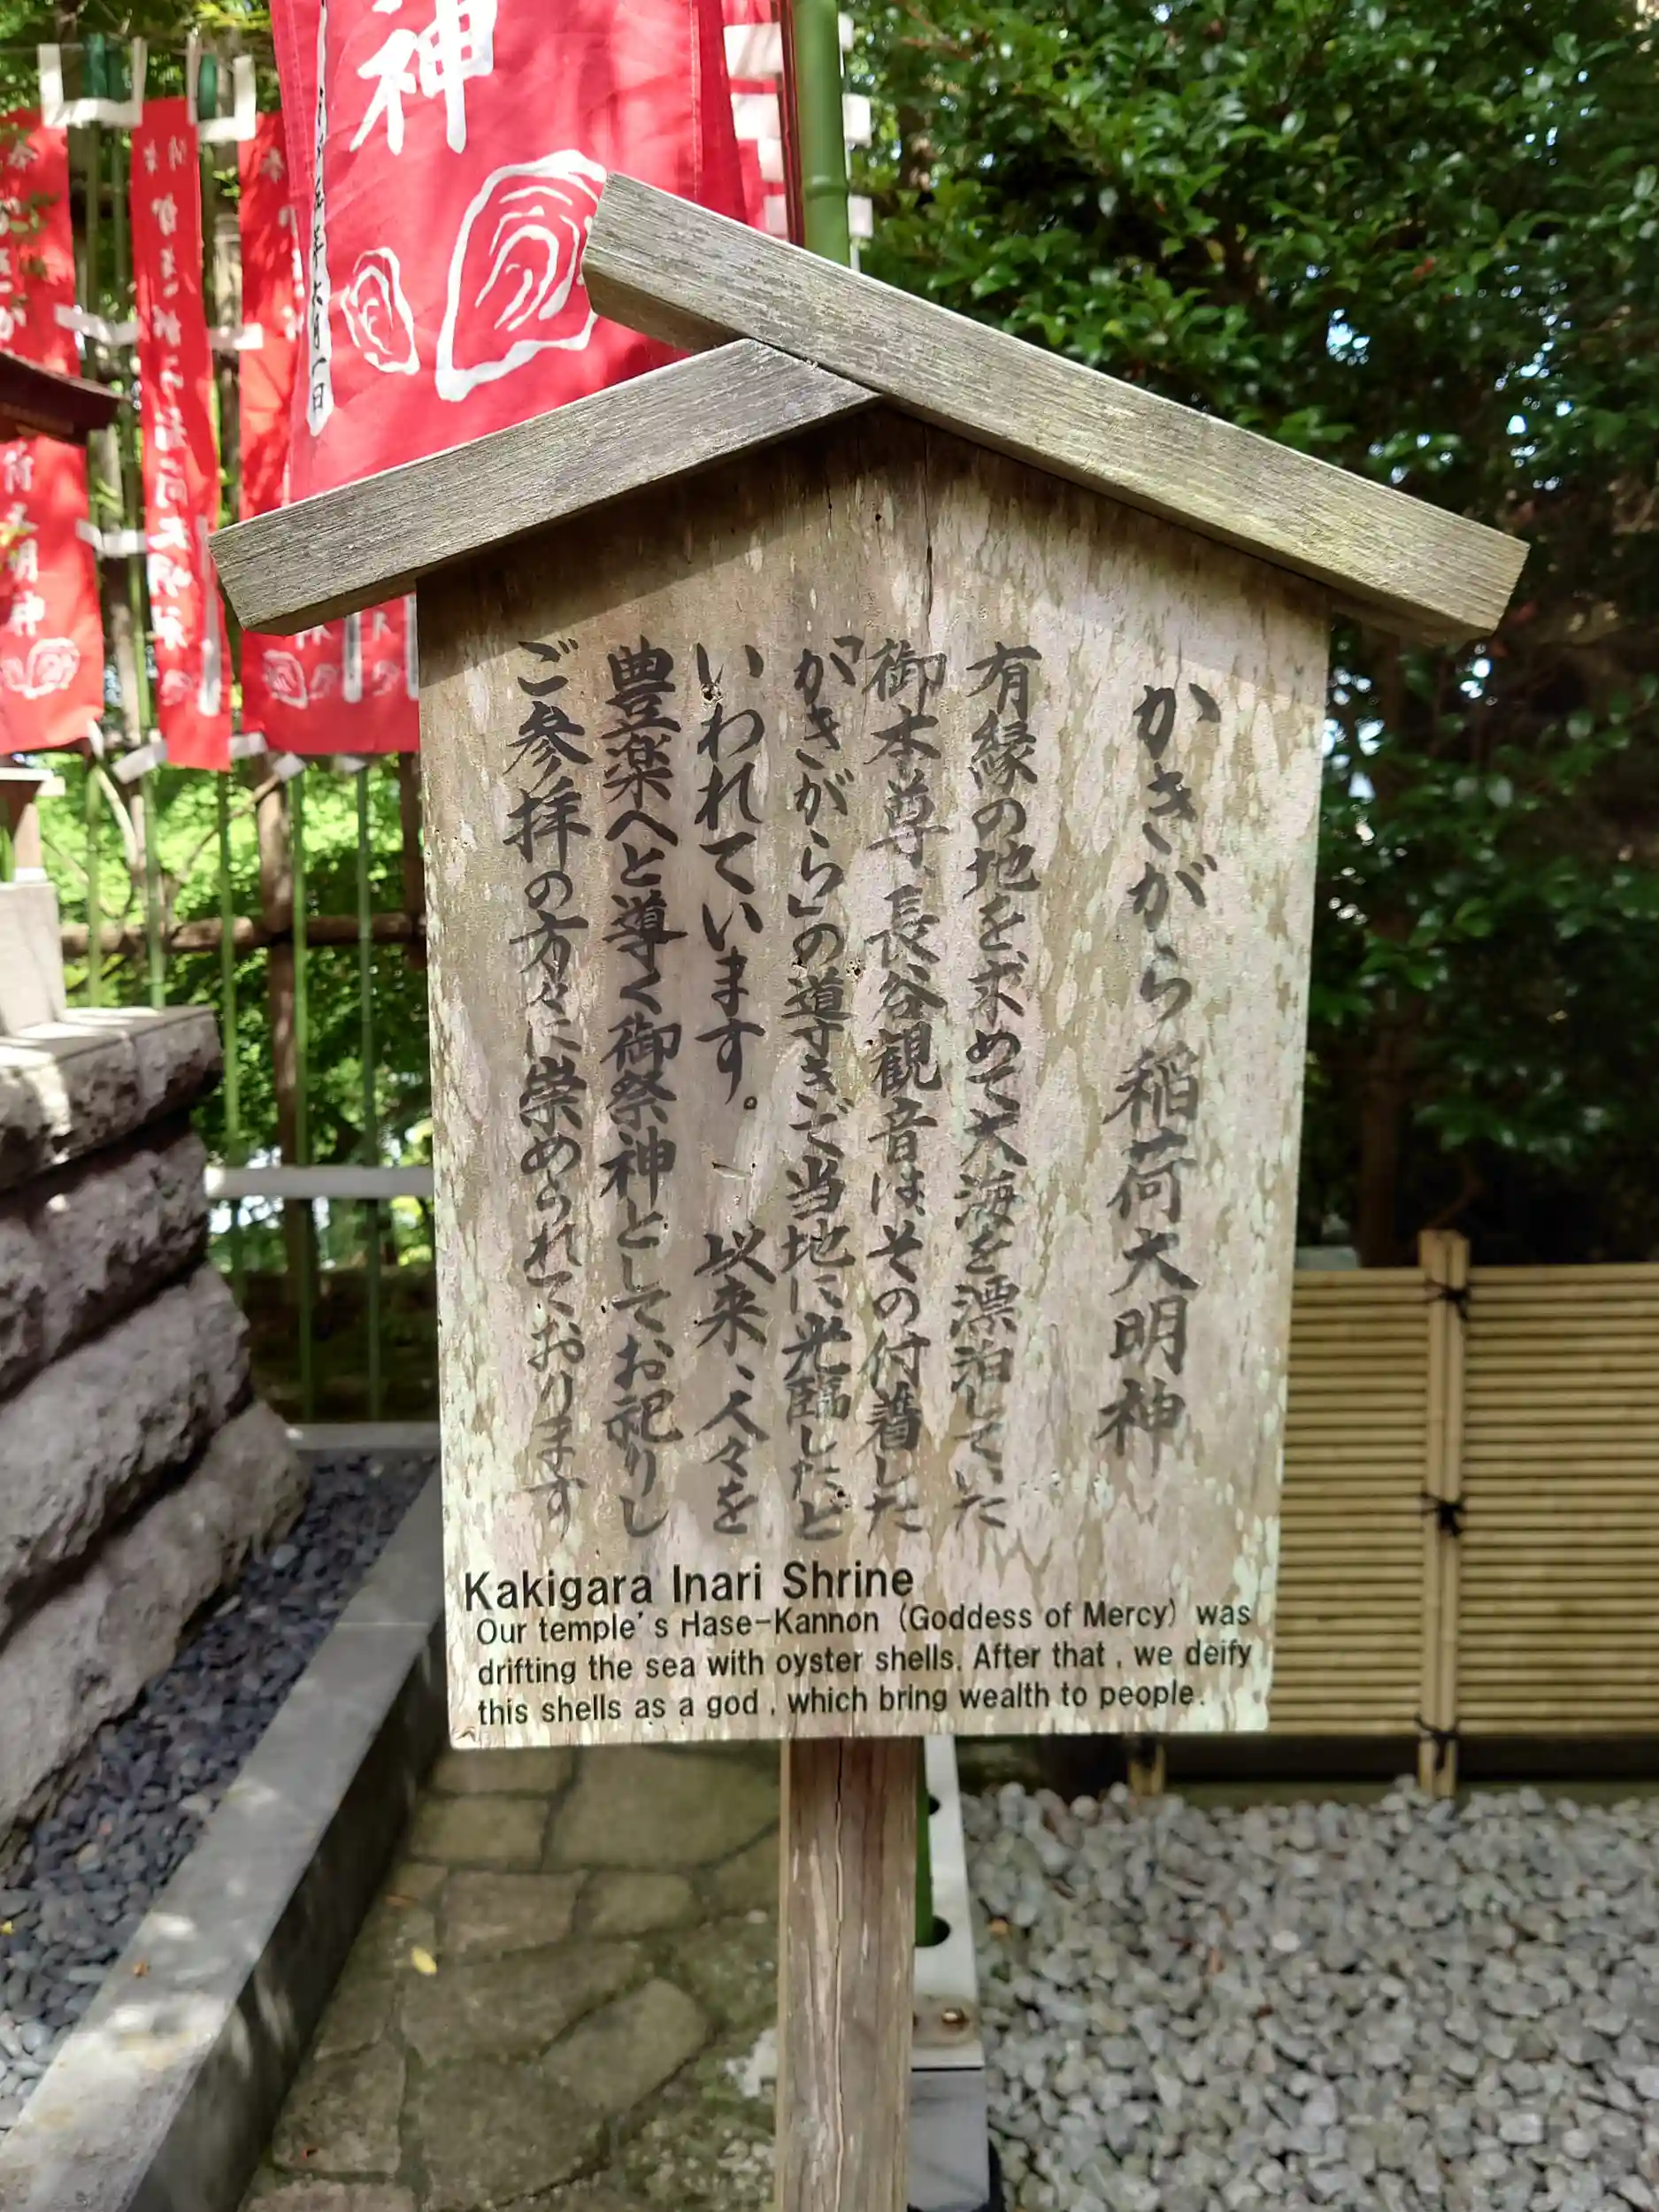 かきがら稲荷大明神
有縁の地を求めて大海を漂泊していた
御本尊、長谷観音はその付着した
「かきがら」の導きご当地に光臨したと
いわれています。以来、人々を
豊楽へと導く御祭神としてお祀りし
ご参拝の方々に崇められております
Kakigara Inari Shrine
Our temple's Hase-Kannon (Goddess of Mercy) was
drifting the sea with oyster shells. After that , we deify
this shells as a god , which bring wealth to people.
神
大明神